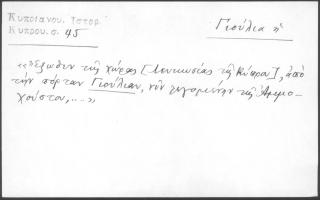 Κυπριανου. Ιστορ.
Κυπρου. σ. 45
Γιούλια ἡ
«Ἔξωθεν τῆς χώρας [Λευκωσίας τῆς Κύπρου], ἀπὸ
τὴν πόρταν Γιούλιαν, νῦν λεγομένην τῆς Ἀμμο-
χούστου,...»